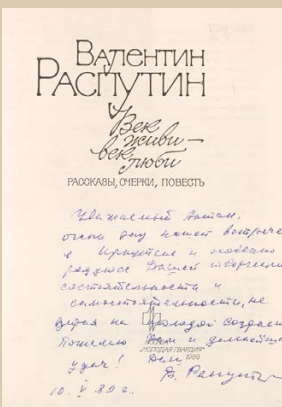 Валентин
Распутин
Век
живи —
век
люби
РАССКАЗЫ, ОЧЕРКИ, ПОВЕСТЬ
Уважаемый Антон,
очень рад нашей встрече
в Иркутске и особенно
радуюсь Вашей творческ
состоятельности и
самостоятельности, не
на молодой возраст
Пожелаю Вам и дальнейш
удач!
"МОЛОДАЯ ГВАРДИЯ"
В. Распути
10. V 89 г.